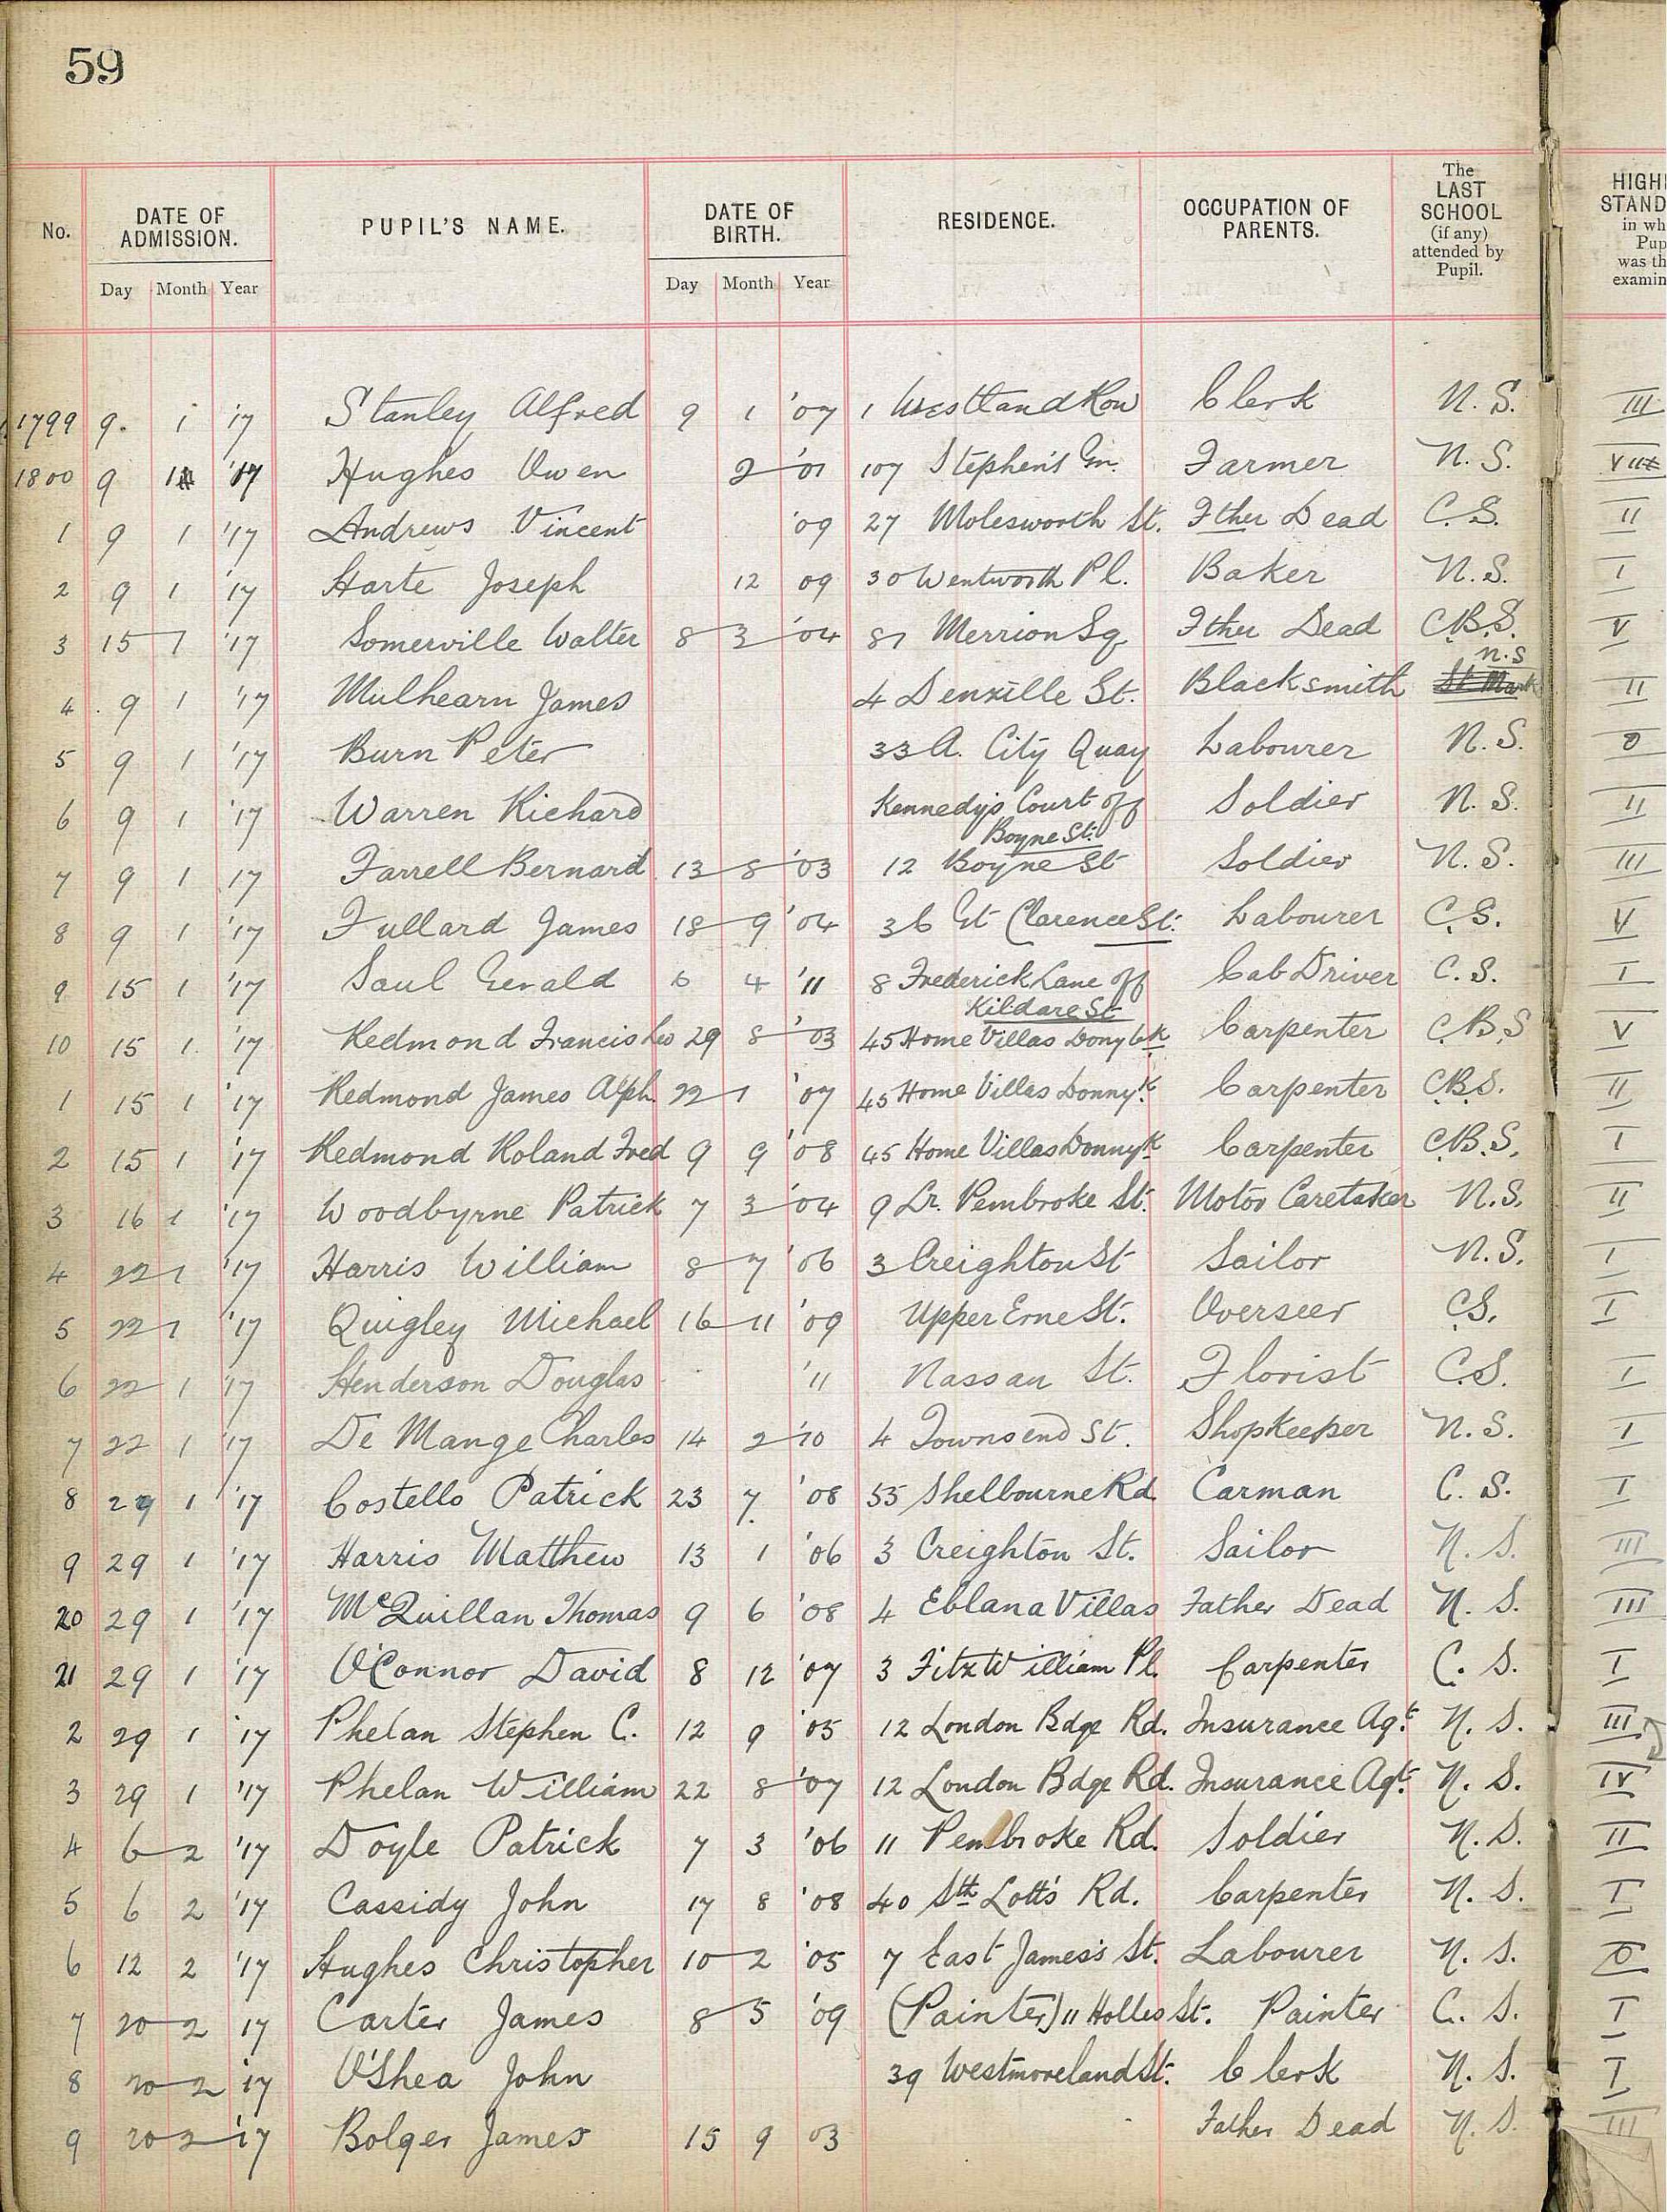 59
No. DATE OF ADMISSION. PUPIL'S NAME. DATE OF BIRTH. RESIDENCE. OCCUPATION OF PARENTS. The LAST SCHOOL (if any) attended by Pupil. HIGH STAND in wh Pup was th examin
Day Month Year Day Month Year
1799 9. 1 '17 Stanley Alfred 9 1 '07 1 Westland Row Clerk N. S. III
1800 9 1 '17 Hughes Owen 2 '01 107 Stephen's Gn. Farmer N. S. VII
1 9 1 '17 Andrews Vincent '09 27 Molesworth St. Fther Dead C. S. II
2 9 1 '17 Harte Joseph 12 09 30 Wentworth Pl. Baker N. S. I
3 15 1 '17 Somerville Walter 8 3 '04 87 Merrion Sq Fther Dead C.B.S. V
4 9 1 '17 Mulhearn James 4 Denzille St. Blacksmith St Mark N.S II
5 9 1 '17 Burn Peter 33 A. City Quay Labourer N. S. 0
6 9 1 '17 Warren Richard Kennedy's Court off Soldier N. S. II
Boyne St.
7 9 1 17 Farrell Bernard 13 8 '03 12 Boyne St Soldier N. S. III
8 9 1 '17 Fullard James 18 9 '04 36 Gt Clarence St. Labourer C. S. V
9 15 1 '17 Saul Gerald 6 4 '11 8 Frederick Lane off Cab Driver C. S. I
Kildare St
10 15 1. '17 Redmond Francis Leo 29 8 '03 45 Home Villas Donybk Carpenter C.B.S V
1 15 1 '17 Redmond James Alph. 22 1 '07 45 Home Villas Donnyk. Carpenter C.B.S. II
2 15 1 '17 Redmond Roland Fred 9 9 '08 45 Home Villas Donnyk Carpenter C.B.S. I
3 16 1 '17 Woodbyrne Patrick 7 3 '04 9 Lr. Pembroke St. Motor Caretaker N.S. II
4 22 1 '17 Harris William 8 7 '06 3 Creighton St Sailor N.S. I
5 22 1 '17 Quigley Michael 16 11 '09 Upper Erne St. Overseer C.S. I
6 22 1 '17 Henderson Douglas '11 Nassau St. Florist C.S. I
7 22 1 '17 De Mange Charles 14 2 '10 4 Townsend St. Shopkeeper N. S. I
8 29 1 '17 Costello Patrick 23 7. '08 55 Shelbourne Rd Carman C. S. I
9 29 1 '17 Harris Matthew 13 1 '06 3 Creighton St. Sailor N. S. III
20 29 1 '17 McQuillan Thomas 9 6 '08 4 Eblana Villas Father Dead N. S. III
21 29 1 '17 O'Connor David 8 12 '07 3 FitzWilliam Pl. Carpenter C. S. I
2 29 1 '17 Phelan Stephen C. 12 9 '05 12 London Bdge Rd. Insurance Agt. N. S. III
3 29 1 '17 Phelan William 22 8 '07 12 London Bdge Rd. Insurance Agt. N. S. IV
4 6 2 '17 Doyle Patrick 7 3 '06 11 Pembroke Rd. Soldier N. S. II
5 6 2 '17 Cassidy John 17 8 '08 40 Sth Lotts Rd. Carpenter N. S. I
6 12 2 '17 Hughes Christopher 10 2 '05 7 East James's St. Labourer N. S. 0
7 20 2 17 Carter James 8 5 '09 (Painter) 11 Holles St. Painter C. S. I
8 20 2 '17 O'Shea John 39 Westmoreland St. Clerk N. S. I
9 20 2 '17 Bolger James 15 9 03 Father Dead N. S. III